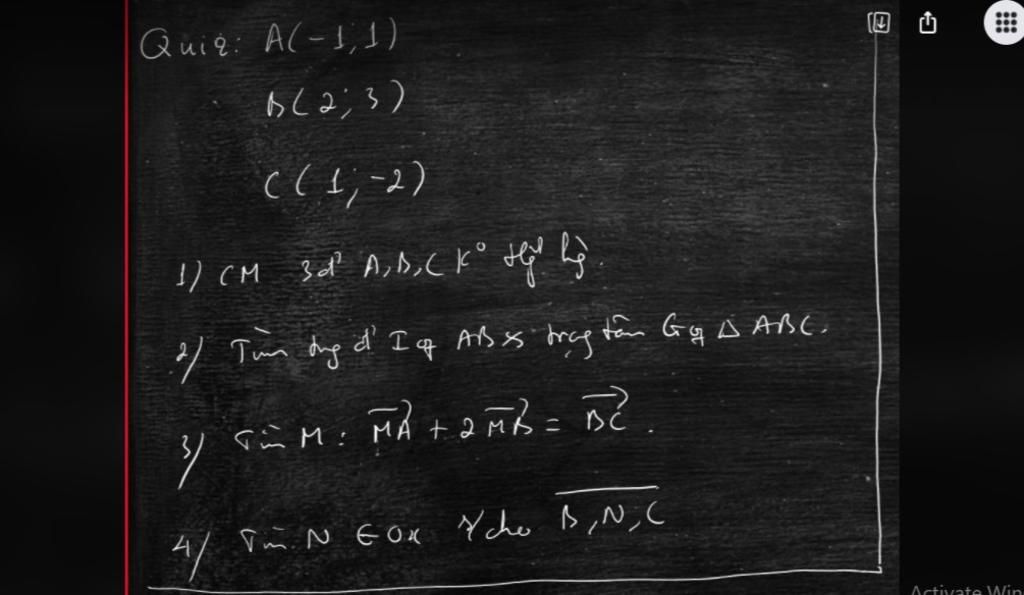 Quiz: A(-1;1)
B(2;3)
C(1;-2)
1) CM 3đ' A,B,C K° thg hg.
2) Tìm trg đ' I of AB & trọg tâm G of Δ ABC.
3) Tìm M: \overrightarrow{MA} + 2\overrightarrow{MB} = \overrightarrow{BC}.
4) Tìm N ∈ Ox s/cho \overline{B,N,C}
Activate Win